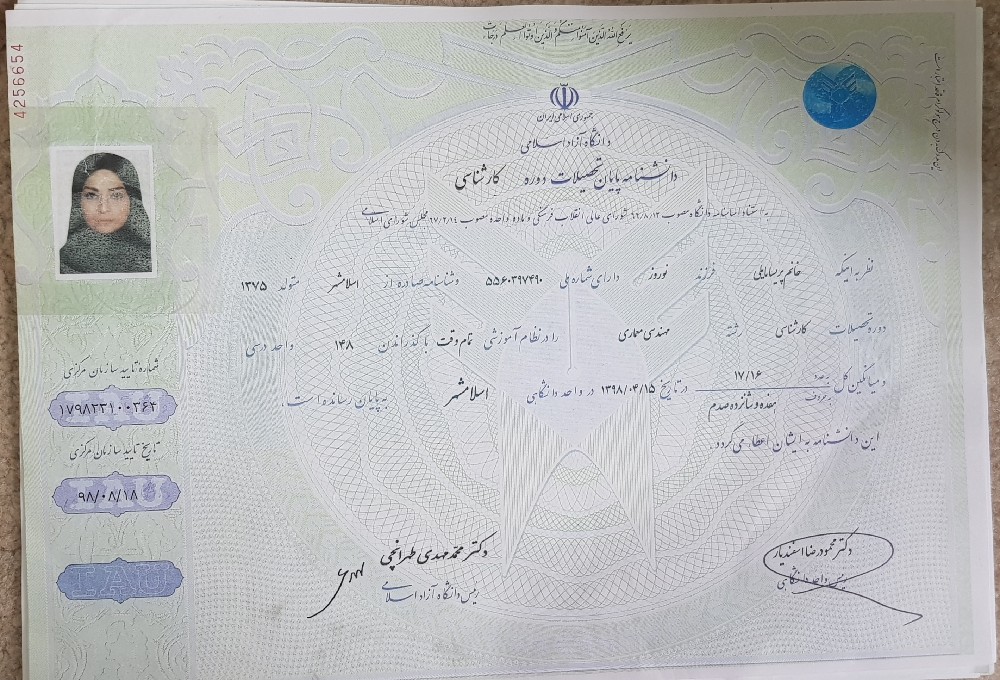 یرفع الله الذین آمنوا منکم و الذین اوتوا العلم درجات
4256654
جمهوری اسلامی ایران
دانشگاه آزاد اسلامی
دانشنامه پایان تحصیلات دوره کارشناسی
به استناد اساسنامه دانشگاه مصوب ۶۶/۸/۱۲ شورای عالی انقلاب فرهنگی و ماده واحده مصوب ۶۷/۲/۱۴ مجلس شورای اسلامی
نظر به اینکه خانم پریسا مایلی فرزند نوروز دارای شماره ملی ۵۵۶۰۳۹۷۴۹۰ و شناسنامه صادره از اسلامشهر متولد ۱۳۷۵
دوره تحصیلات کارشناسی رشته مهندسی معماری را در نظام آموزشی تمام وقت با گذراندن ۱۴۸ واحد درسی
و میانگین کل به عدد ۱۷/۱۶ به حروف هفده و شانزده صدم در تاریخ ۱۳۹۸/۰۴/۱۵ در واحد دانشگاهی اسلامشهر به پایان رسانده است.
این دانشنامه به ایشان اعطا می گردد.
شماره تایید سازمان مرکزی
۱۷۹۸۳۳۱۰۰۳۶۳
تاریخ تایید سازمان مرکزی
۹۸/۰۸/۱۸
IAU
دکتر محمودرضا اسفندیار
رئیس واحد دانشگاهی
دکتر محمد مهدی طهرانچی
رئیس دانشگاه آزاد اسلامی